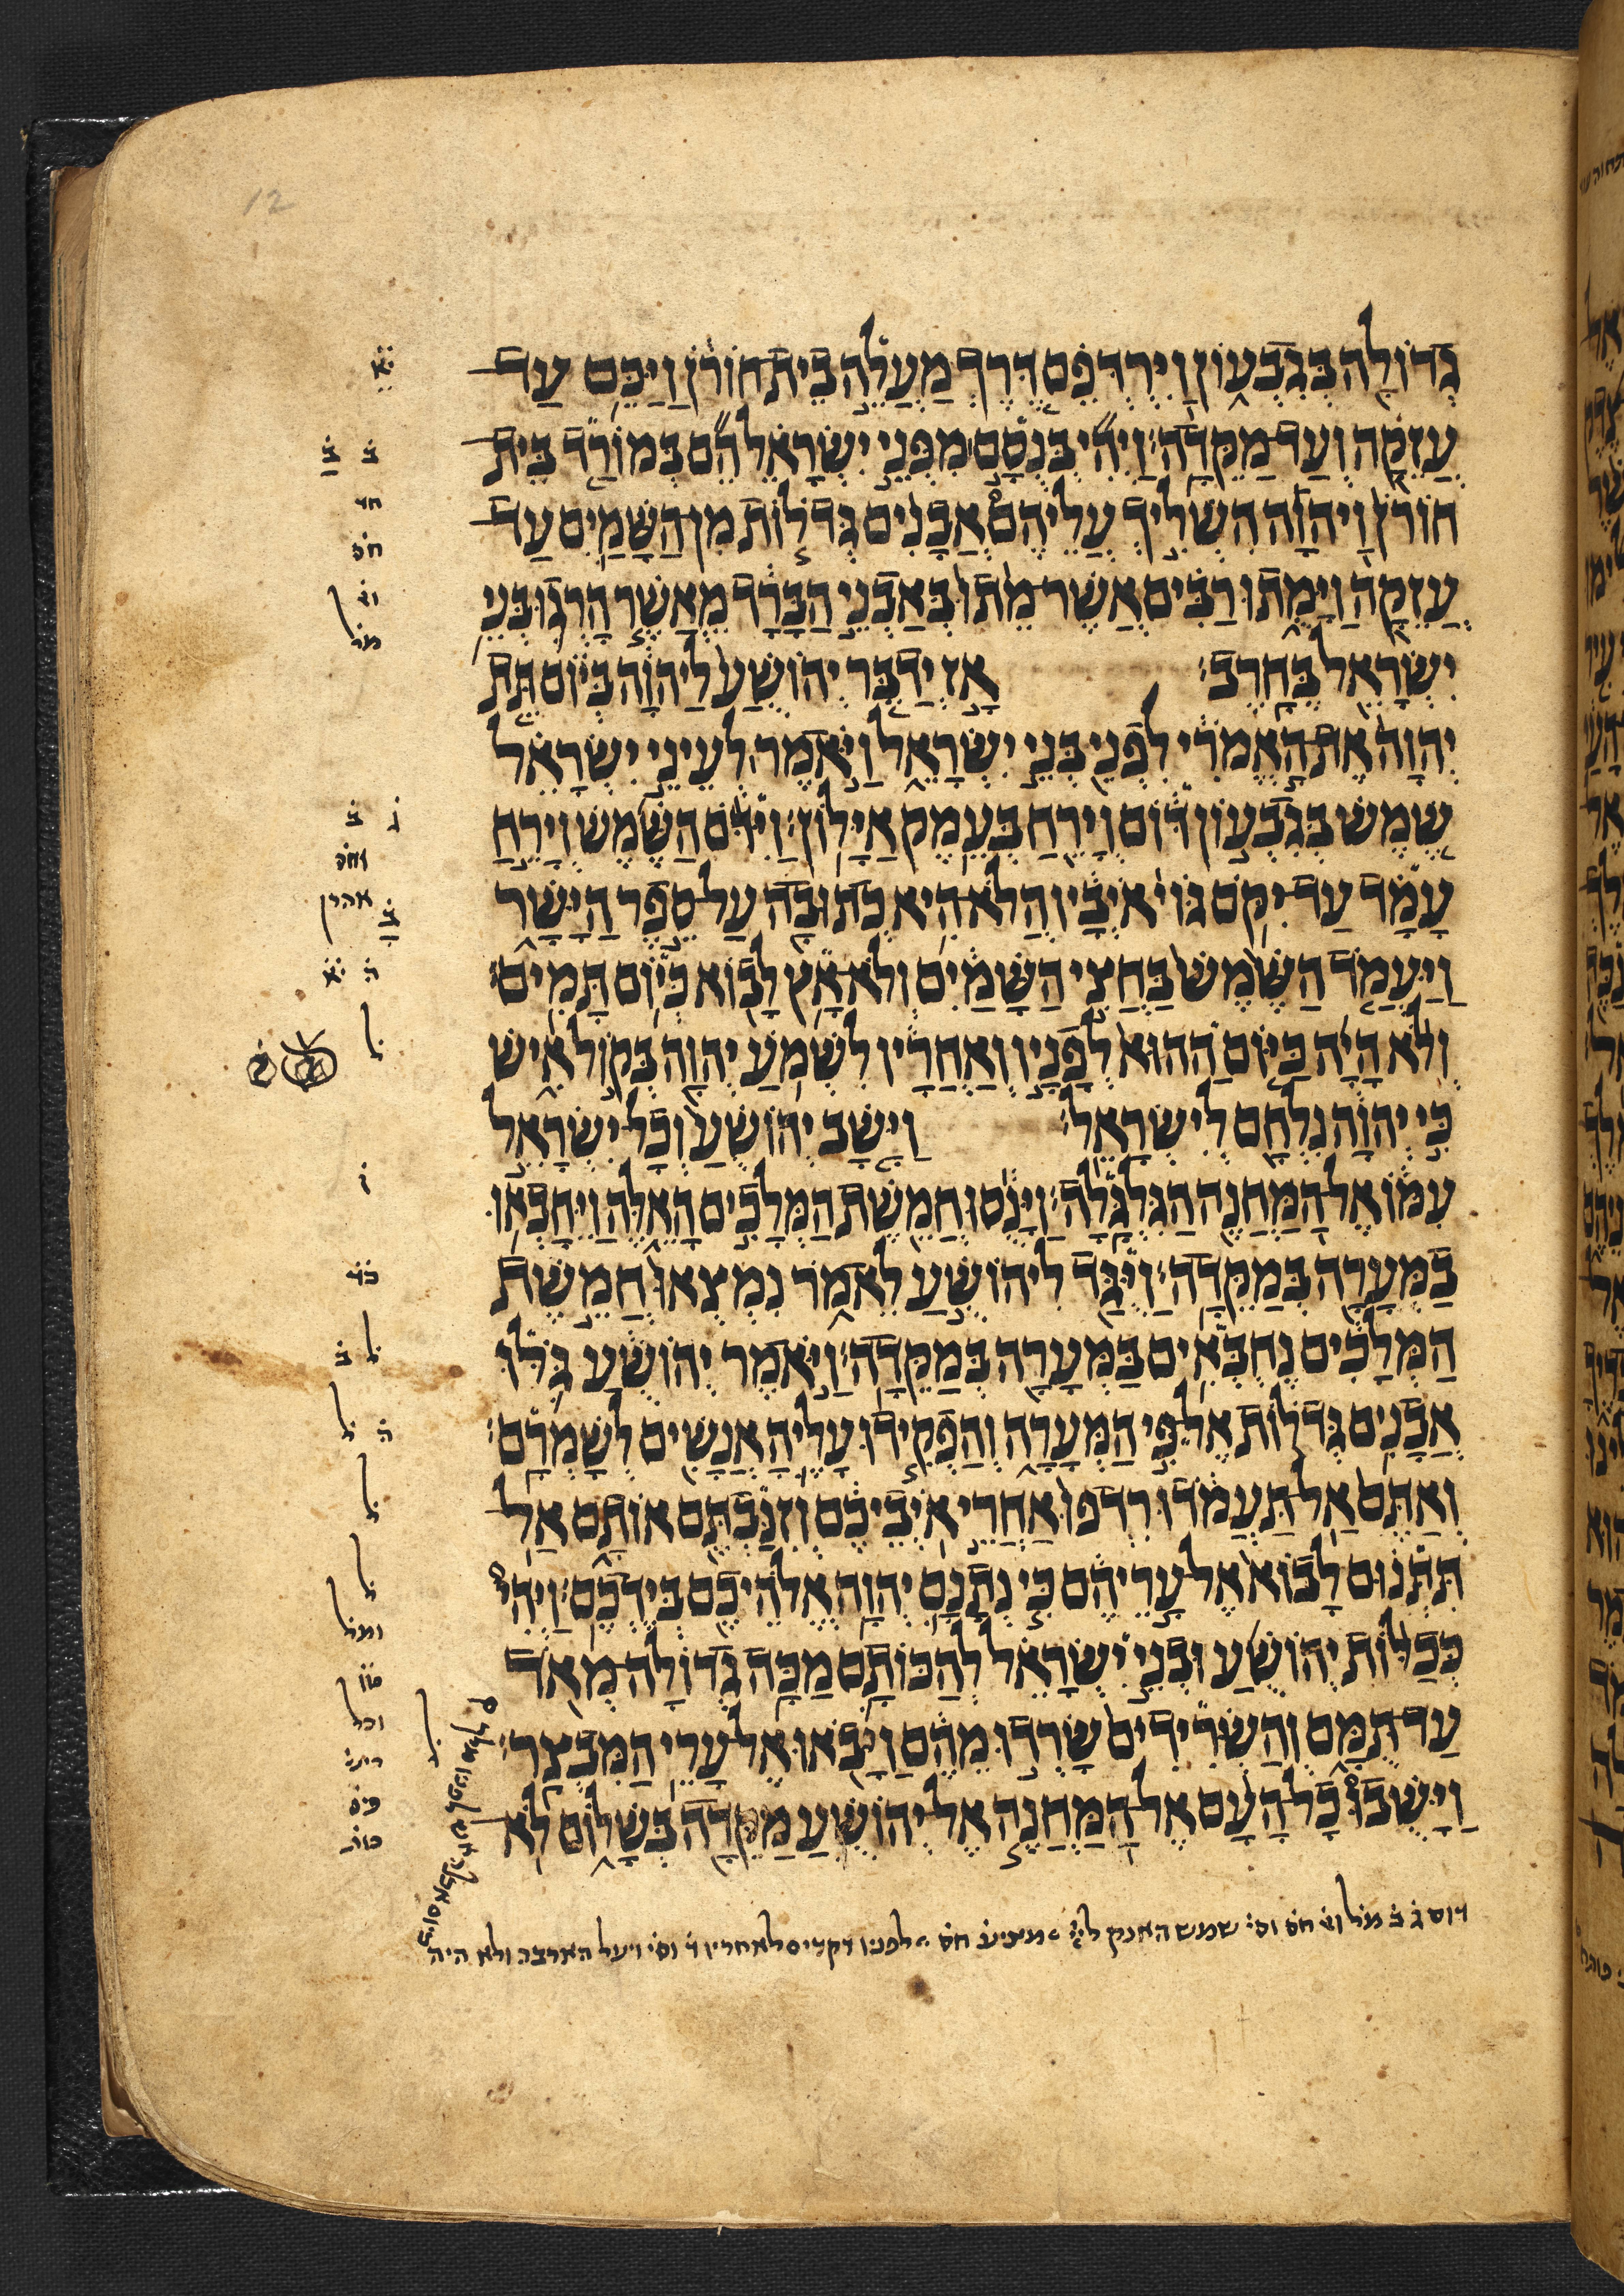 גְּדוֹלָה בְּגִבְעוֹן וַיִּרְדְּפֵם דֶּרֶךְ מַעֲלֵה בֵית חוֹרֹן וַיַּכֵּם עַד
עֲזֵקָה וְעַד מַקֵּדָה׃ וַיְהִי בְּנֻסָם מִפְּנֵי יִשְׂרָאֵל הֵם בְּמוֹרַד בֵּית
חוֹרֹן וַיהוָה הִשְׁלִיךְ עֲלֵיהֶם אֲבָנִים גְּדֹלוֹת מִן הַשָּׁמַיִם עַד
עֲזֵקָה וַיָּמֻתוּ רַבִּים אֲשֶׁר מֵתוּ בְּאַבְנֵי הַבָּרָד מֵאֲשֶׁר הָרְגוּ בְּנֵי
יִשְׂרָאֵל בֶּחָרֶב׃ אָז יְדַבֵּר יְהוֹשֻׁעַ לַיהוָה בְּיוֹם תֵּת
יְהוָה אֶת הָאֱמֹרִי לִפְנֵי בְּנֵי יִשְׂרָאֵל וַיֹּאמֶר לְעֵינֵי יִשְׂרָאֵל
שֶׁמֶשׁ בְּגִבְעוֹן דּוֹם וְיָרֵחַ בְּעֵמֶק אַיָּלוֹן׃ וַיִּדֹּם הַשֶּׁמֶשׁ וְיָרֵחַ
עָמָד עַד יִקֹּם גּוֹי אֹיְבָיו הֲלֹא הִיא כְתוּבָה עַל סֵפֶר הַיָּשָׁר
וַיַּעֲמֹד הַשֶּׁמֶשׁ בַּחֲצִי הַשָּׁמַיִם וְלֹא אָץ לָבוֹא כְּיוֹם תָּמִים׃
וְלֹא הָיָה כַּיּוֹם הַהוּא לְפָנָיו וְאַחֲרָיו לִשְׁמֹעַ יְהוָה בְּקוֹל אִישׁ
כִּי יְהוָה נִלְחָם לְיִשְׂרָאֵל׃ וַיָּשָׁב יְהוֹשֻׁעַ וְכָל יִשְׂרָאֵל
עִמּוֹ אֶל הַמַּחֲנֶה הַגִּלְגָּלָה׃ וַיָּנֻסוּ חֲמֵשֶׁת הַמְּלָכִים הָאֵלֶּה וַיֵּחָבְאוּ
בַמְּעָרָה בְּמַקֵּדָה׃ וַיֻּגַּד לִיהוֹשֻׁעַ לֵאמֹר נִמְצְאוּ חֲמֵשֶׁת
הַמְּלָכִים נֶחְבְּאִים בַּמְּעָרָה בְּמַקֵּדָה׃ וַיֹּאמֶר יְהוֹשֻׁעַ גֹּלּוּ
אֲבָנִים גְּדֹלוֹת אֶל פִּי הַמְּעָרָה וְהַפְקִידוּ עָלֶיהָ אֲנָשִׁים לְשָׁמְרָם׃
וְאַתֶּם אַל תַּעֲמֹדוּ רִדְפוּ אַחֲרֵי אֹיְבֵיכֶם וְזִנַּבְתֶּם אוֹתָם אַל
תִּתְּנוּם לָבוֹא אֶל עָרֵיהֶם כִּי נְתָנָם יְהוָה אֱלֹהֵיכֶם בְּיֶדְכֶם׃ וַיְהִי
כְּכַלּוֹת יְהוֹשֻׁעַ וּבְנֵי יִשְׂרָאֵל לְהַכּוֹתָם מַכָּה גְדוֹלָה מְאֹד
עַד תֻּמָּם וְהַשְּׂרִידִים שָׂרְדוּ מֵהֶם וַיָּבֹאוּ אֶל עָרֵי הַמִּבְצָר׃
וַיָּשֻׁבוּ כָל הָעָם אֶל הַמַּחֲנֶה אֶל יְהוֹשֻׁעַ מַקֵּדָה בְּשָׁלוֹם לֹא
12